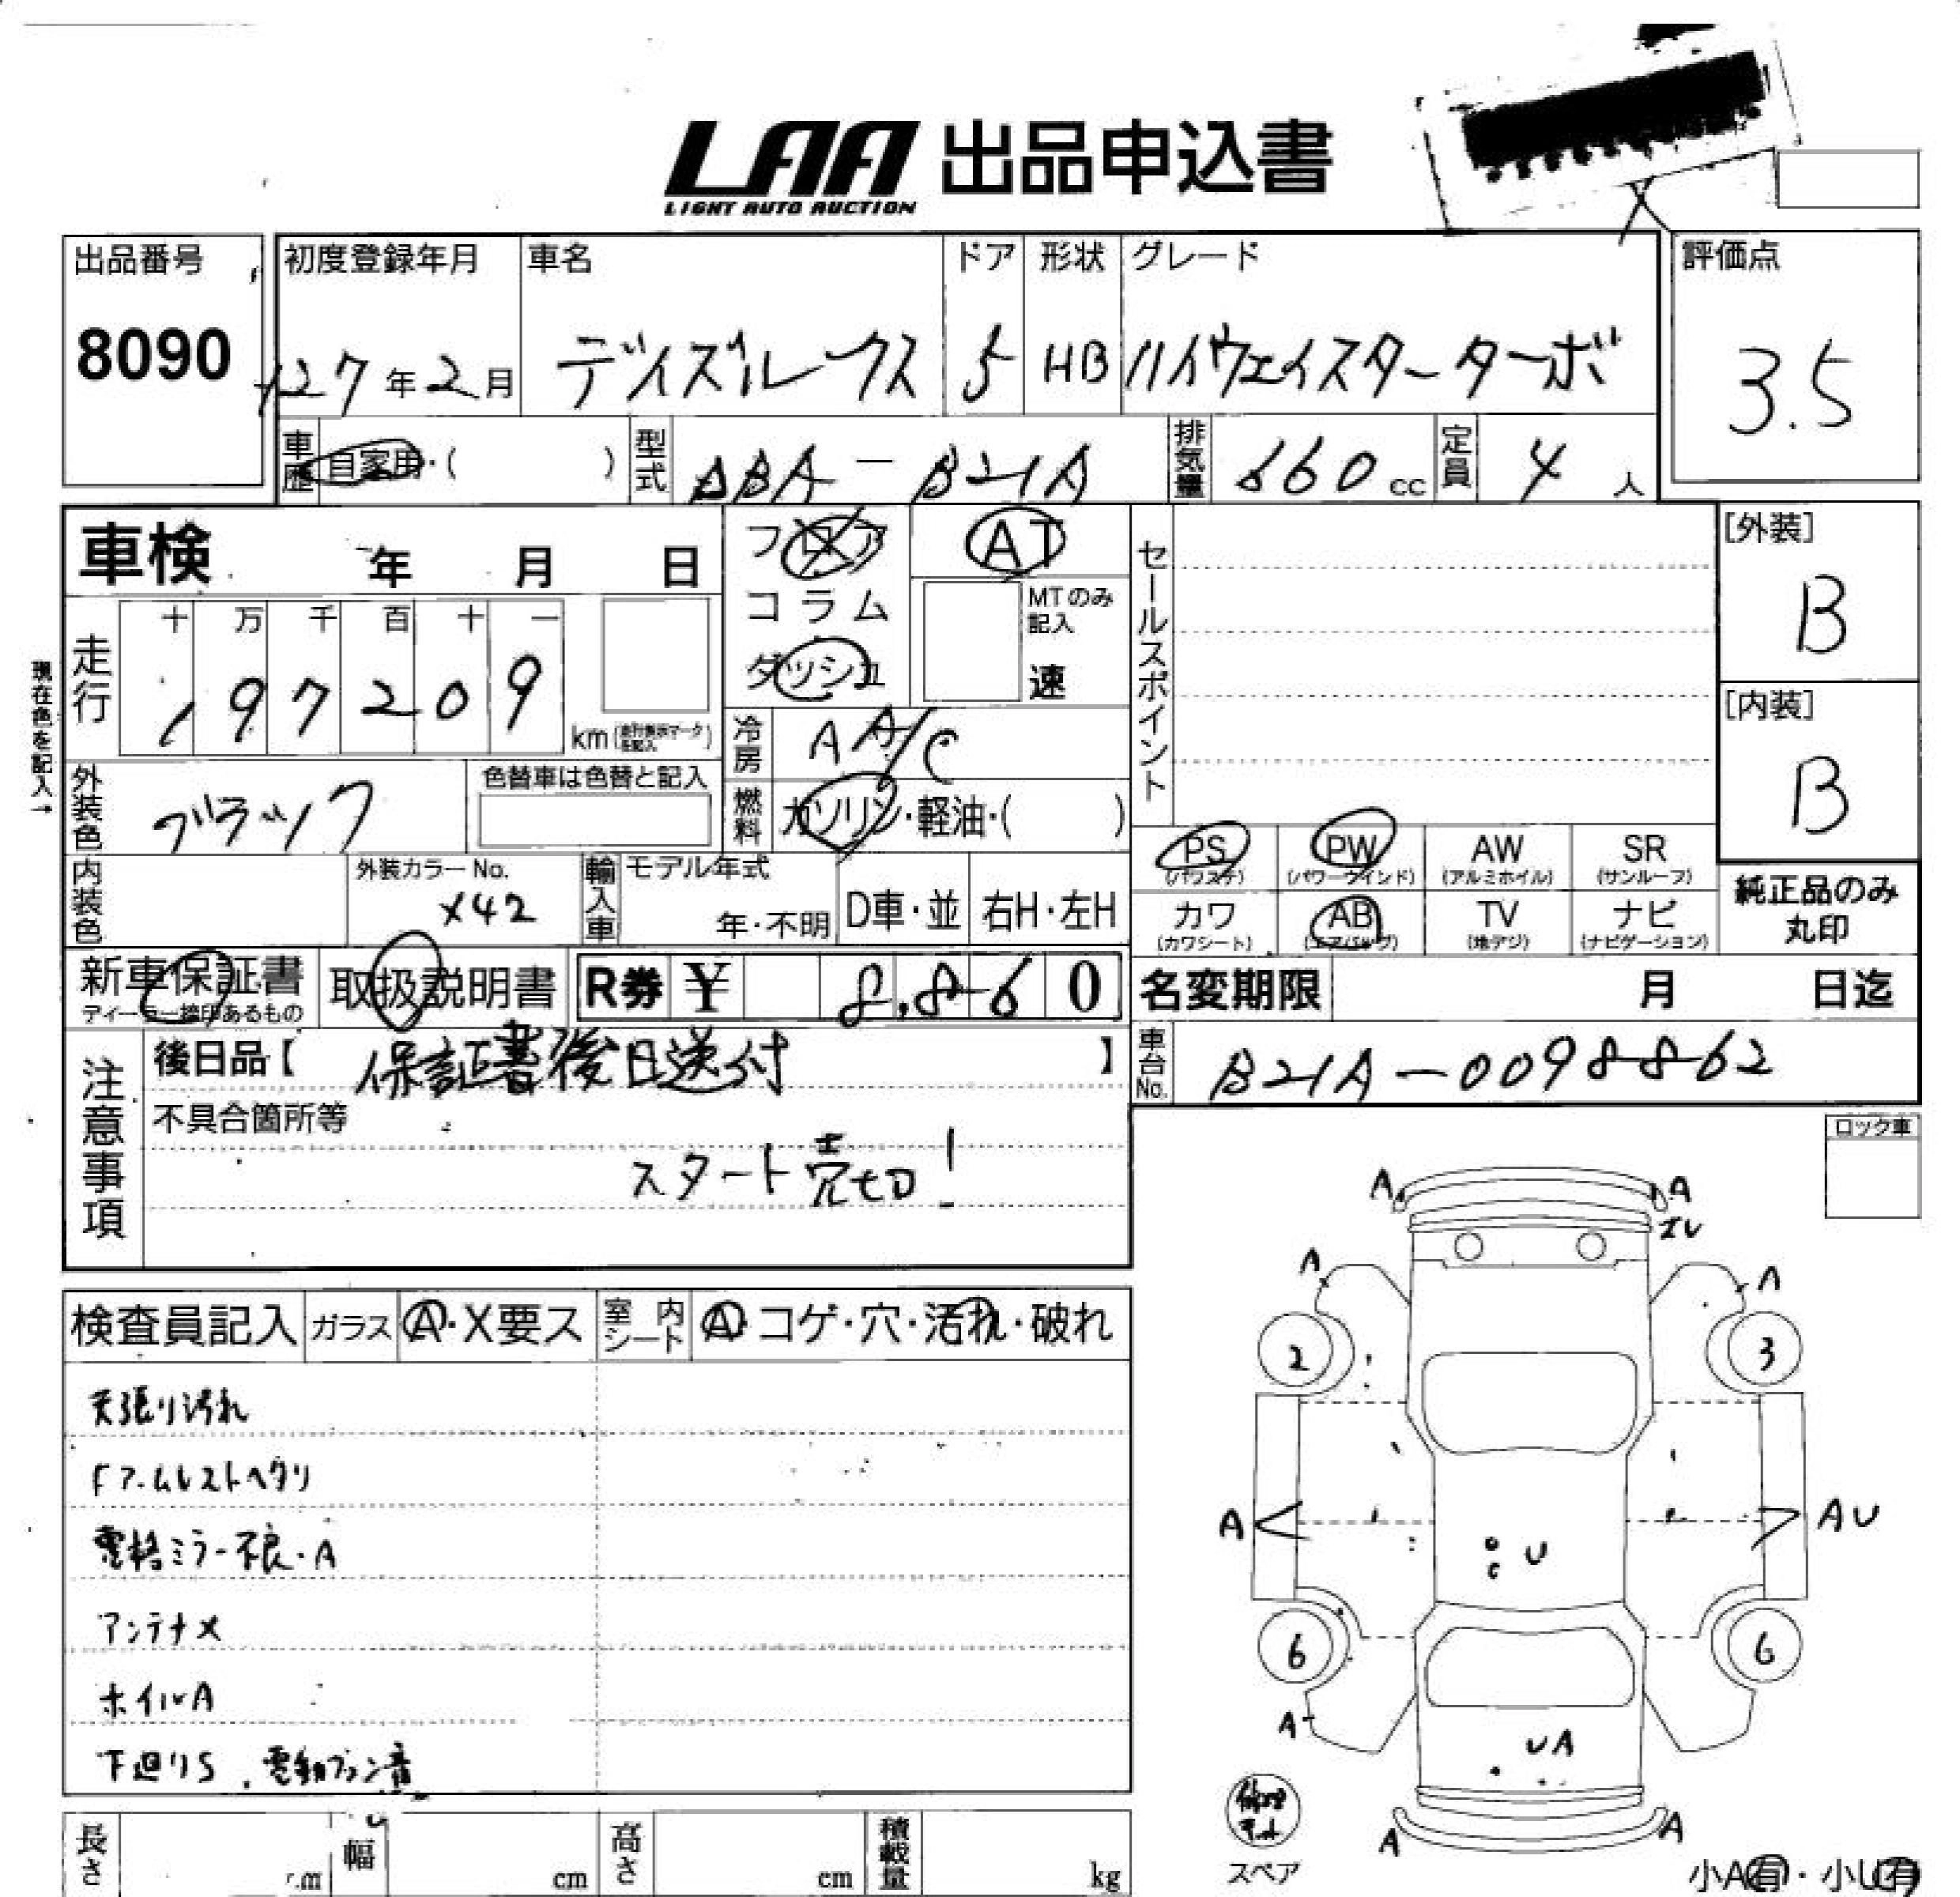 LAA 出品申込書
LIGHT AUTO AUCTION
出品番号
8090
初度登録年月 車名 ドア 形状 グレード
H27年2月 デイズルークス 5 HB ハイウェイスターターボ
評価点
3.5
車歴 自家用・( ) 型式 DBA-B21A 排気量 660cc 定員 4人
車検 年 月 日
フロア AT
コラム MTのみ記入
ダッシュ 速
セールスポイント
[外装]
B
[内装]
B
現在色を記入→
走行 十 万 千 百 十 一
1 9 7 2 0 9 km(走行表示マークを記入)
冷房 AA/C
外装色 ブラック 色替車は色替と記入
燃料 ガソリン・軽油・( )
内装色 外装カラーNo. X42
輸入車 モデル年式 年・不明 D車・並 右H・左H
PS(パワステ) PW(パワーウインド) AW(アルミホイル) SR(サンルーフ)
カワ(カワシート) AB(エアバッグ) TV(地デジ) ナビ(ナビゲーション)
純正品のみ丸印
新車保証書 取扱説明書 R券 ¥ 8,860
ディーラー捺印あるもの
名変期限 月 日迄
注意事項 後日品【 保証書後日送付 】
車台No. B21A-0098862
不具合箇所等
スタート売切!
ロック車
検査員記入 ガラス A・X要ス 室内シート A・コゲ・穴・汚れ・破れ
天張り汚れ
Fアームレストヘタリ
電格ミラー不良・A
アンテナX
ホイルA
下廻りS、電動ファン音
A A
A A
2 3
A AU
U
C
6 6
A UA
A A
修理キット
スペア
小A有・小U有
長さ cm 幅 cm 高さ cm 積載量 kg